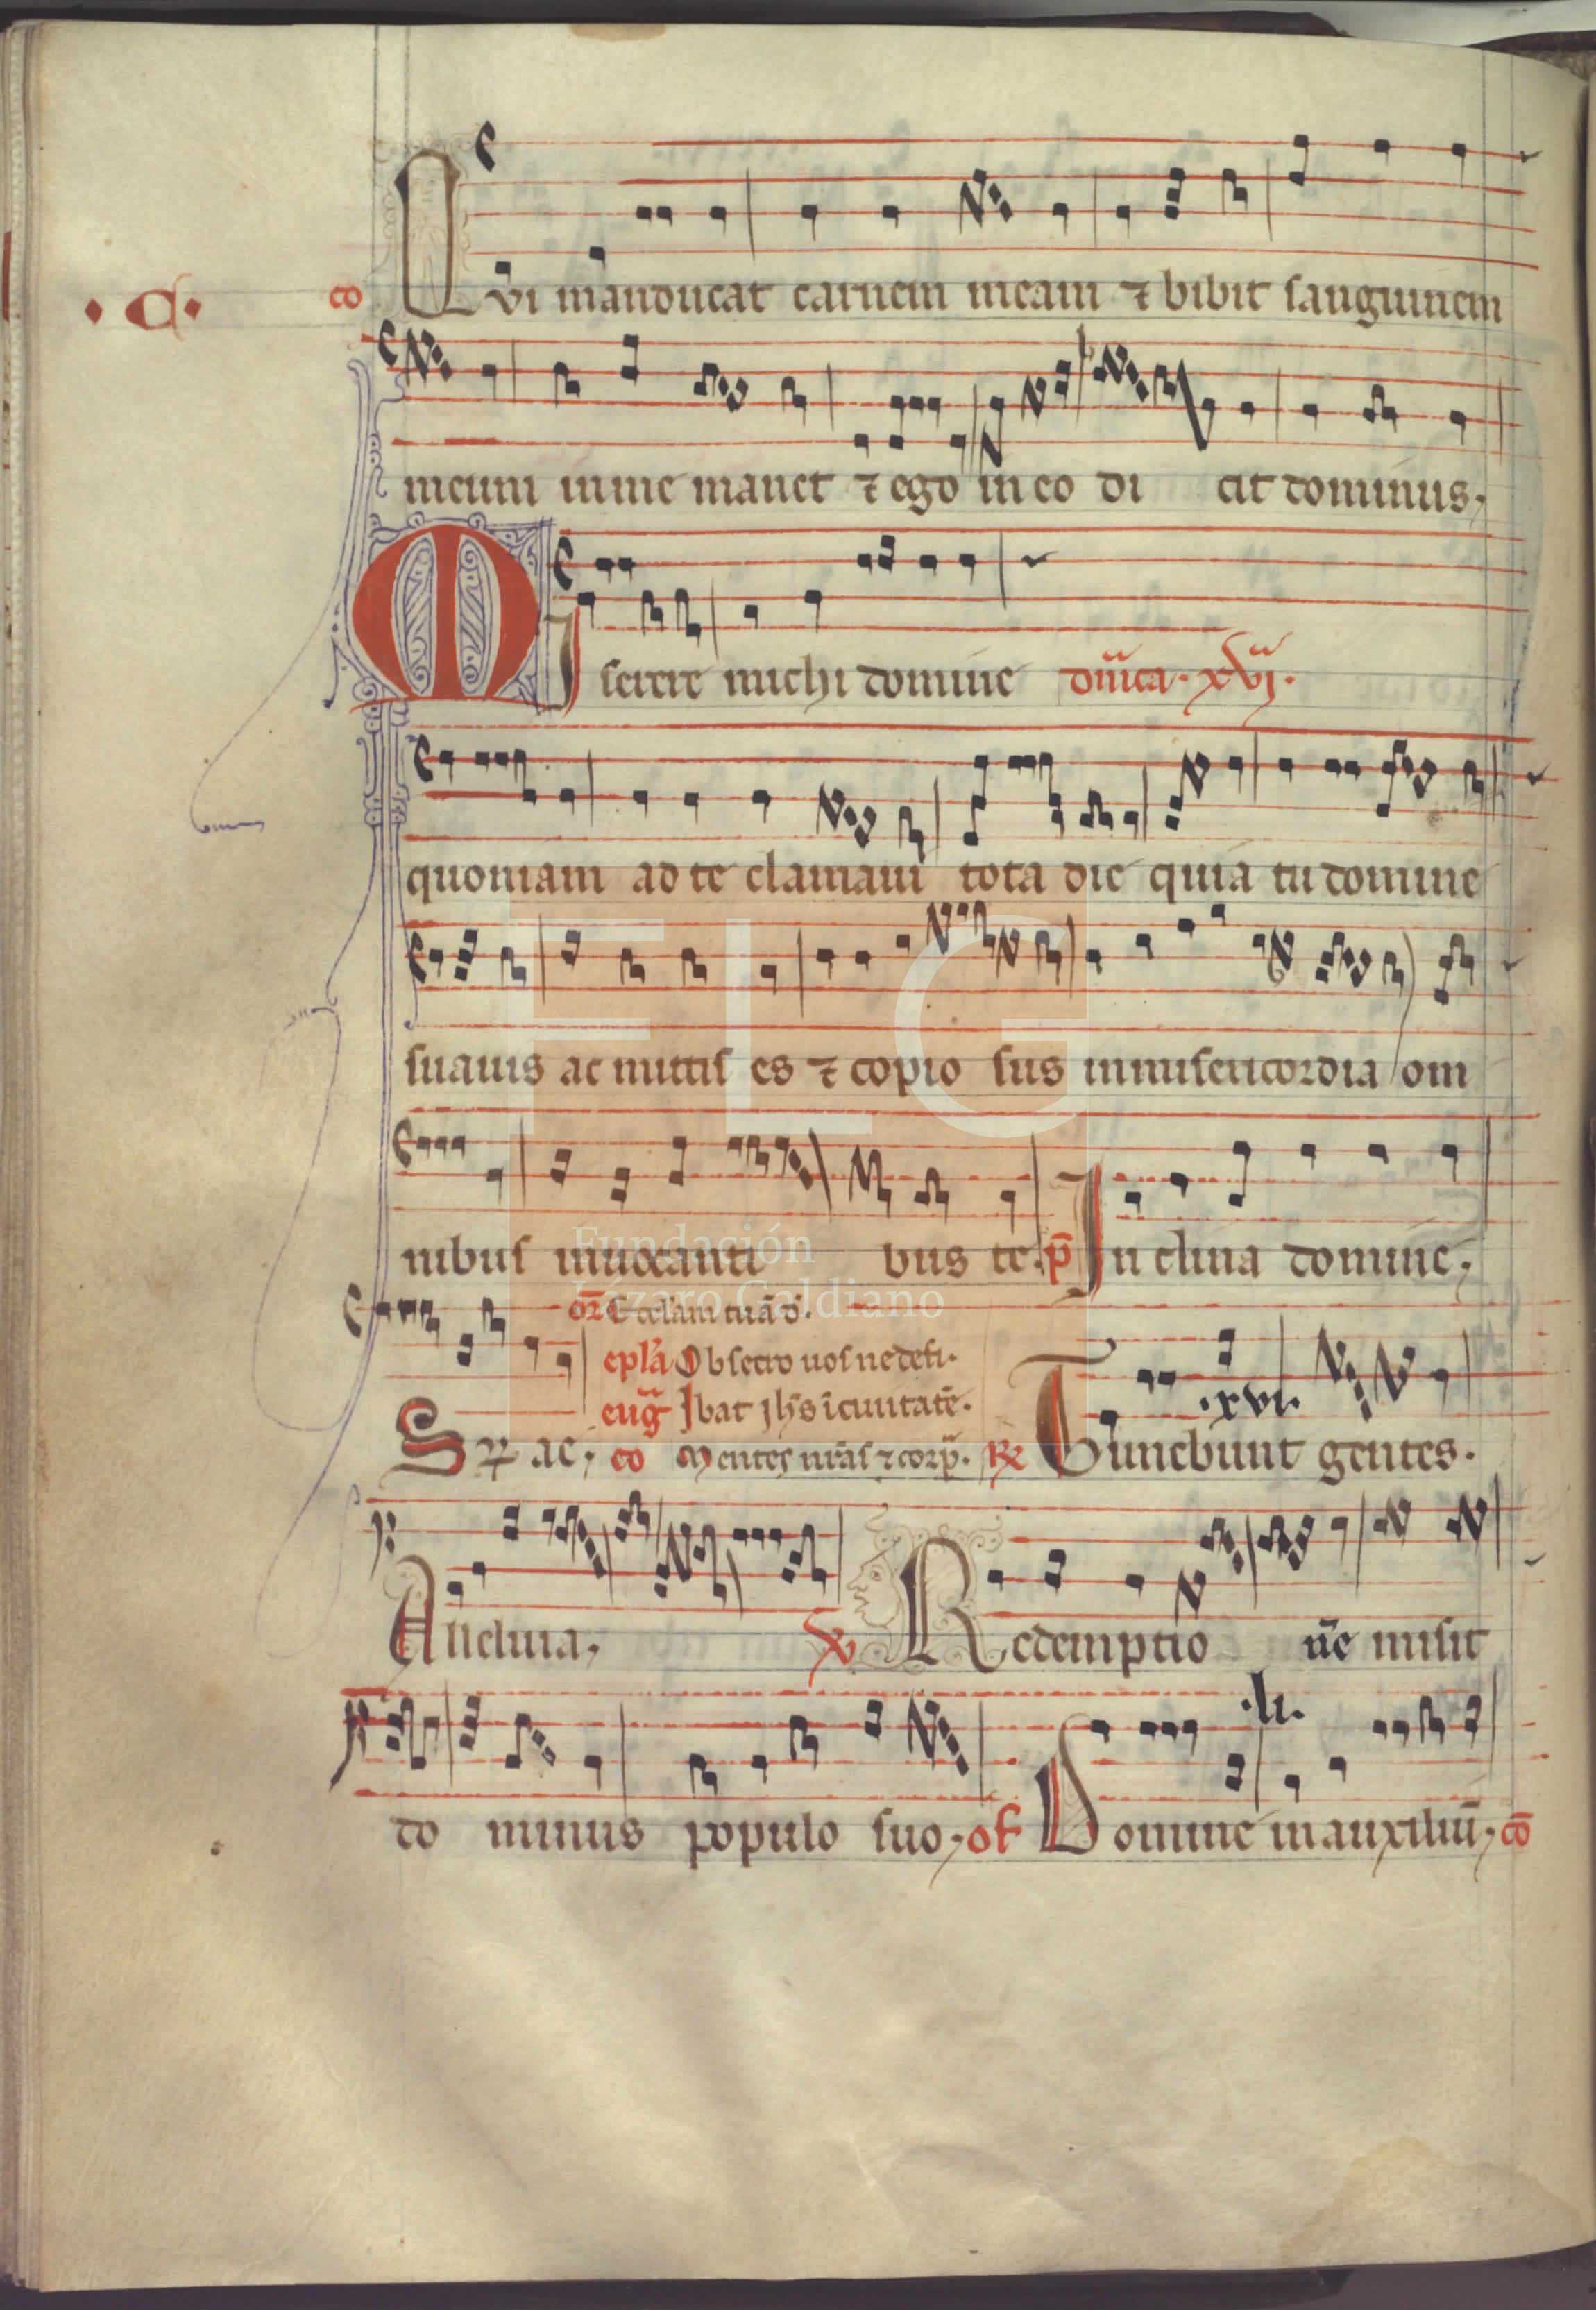 ·C·
co Qvi manducat carnem meam ⁊ bibit sanguinem
meum in me manet ⁊ ego in eo di cit dominus.
MIserere michi domine dn̄ica· xvj·
quoniam ad te clamaui tota die quia tu domine
suauis ac mittis es ⁊ copio sus in misericordia om
nibus inuocanti bus te. p̄ Inclina domine.
or̄ Eccl'am tuā d̄.
epl'a Obsecro uos ne defi·
euḡ Ibat jhs̄ ī ciuitatē·
·xvi·
S ꝑ ae. co Mentes nr̄as ⁊ corp̄. ℟ Timebunt gentes.
Alleluia. ℣ Redemptio nē misit
·li·
do minus populo suo. of Domine in auxiliū. cō
FLG
Fundación
Lázaro Galdiano